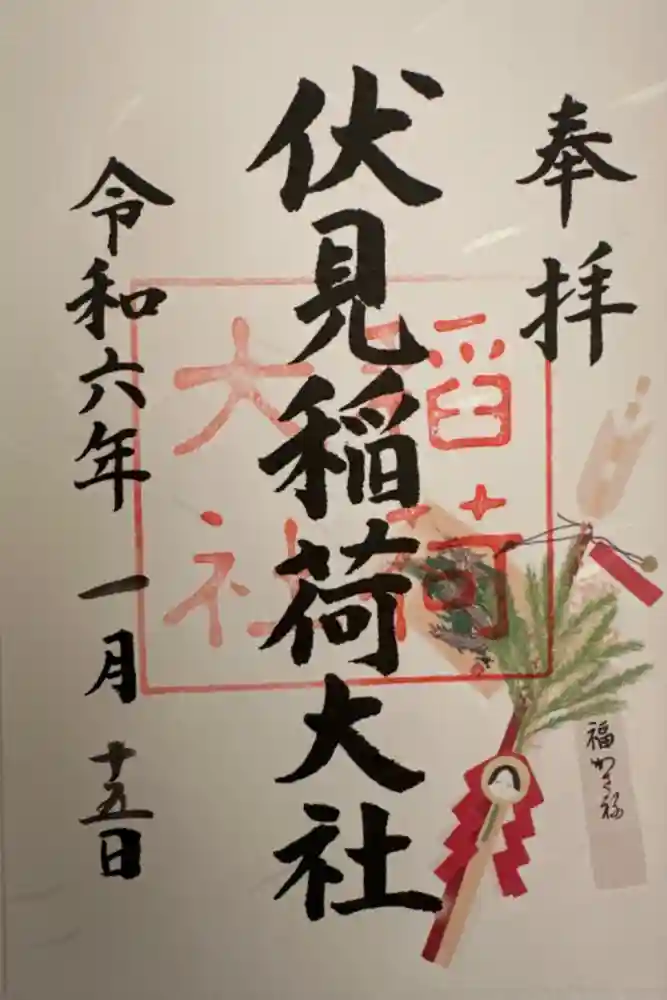 奉拝
伏見稲荷大社
令和六年一月十五日
稲荷
大社
福かさ福